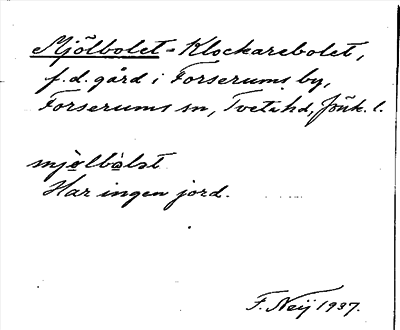 Mjölbolet = Klockarebolet,
f.d. gård i Forserums by,
Forserums sn, Tveta hd, Jönk. l.
mjö̀lbo̱lət
Har ingen jord.
F. Neij 1937.